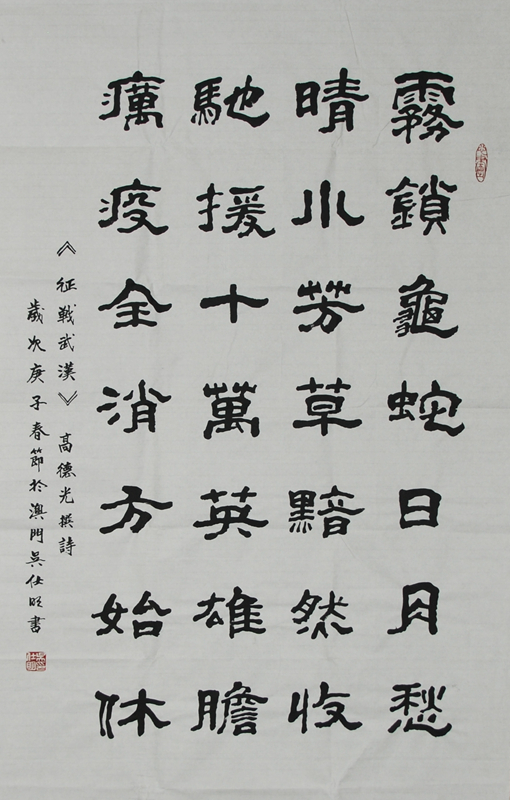 霧鎖龜蛇日月愁
晴川芳草黯然收
馳援十萬英雄膽
癘疫全消方始休
《征戰武漢》高德光撰詩
歲次庚子春節於澳門吳仕明書